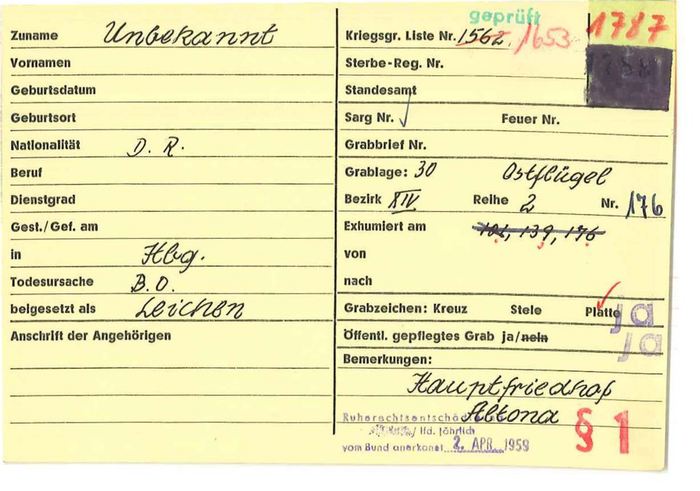 geprüft
Zuname Unbekannt
Vornamen
Geburtsdatum
Geburtsort
Nationalität D. R.
Beruf
Dienstgrad
Gest./Gef. am
in Hbg.
Todesursache B.O.
beigesetzt als Leichen
Anschrift der Angehörigen
Kriegsgr. Liste Nr. 1562. 1653 1787
Sterbe-Reg. Nr.
Standesamt
Sarg Nr. Feuer Nr.
Grabbrief Nr.
Grablage: 30 Ostflügel
Bezirk XIV Reihe 2 Nr. 176
Exhumiert am 139, 176
von
nach
Grabzeichen: Kreuz Stele Platte ja
Öffentl. gepflegtes Grab ja/nein ja
Bemerkungen:
Hauptfriedhof
Altona
§ 1
lfd. jährlich
vom Bund anerkannt 2. APR. 1959